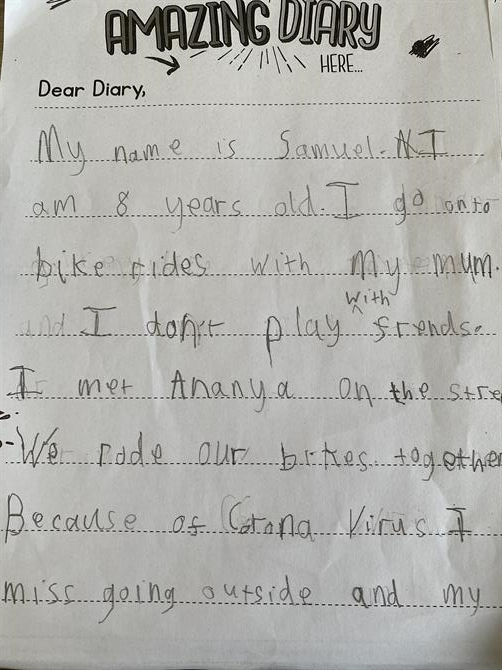 AMAZING DIARY
HERE...
Dear Diary,
My name is Samuel. I
am 8 years old. I go onto
bike rides with My mum.
and I don't play with frends.
I met Ananya on the stre
We rode our bikes together
Because of Corona Virus I
miss going outside and my